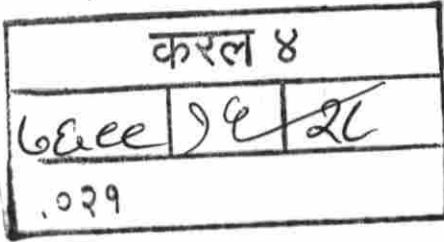 करल ४
७६९९ १६ २८
.०२१